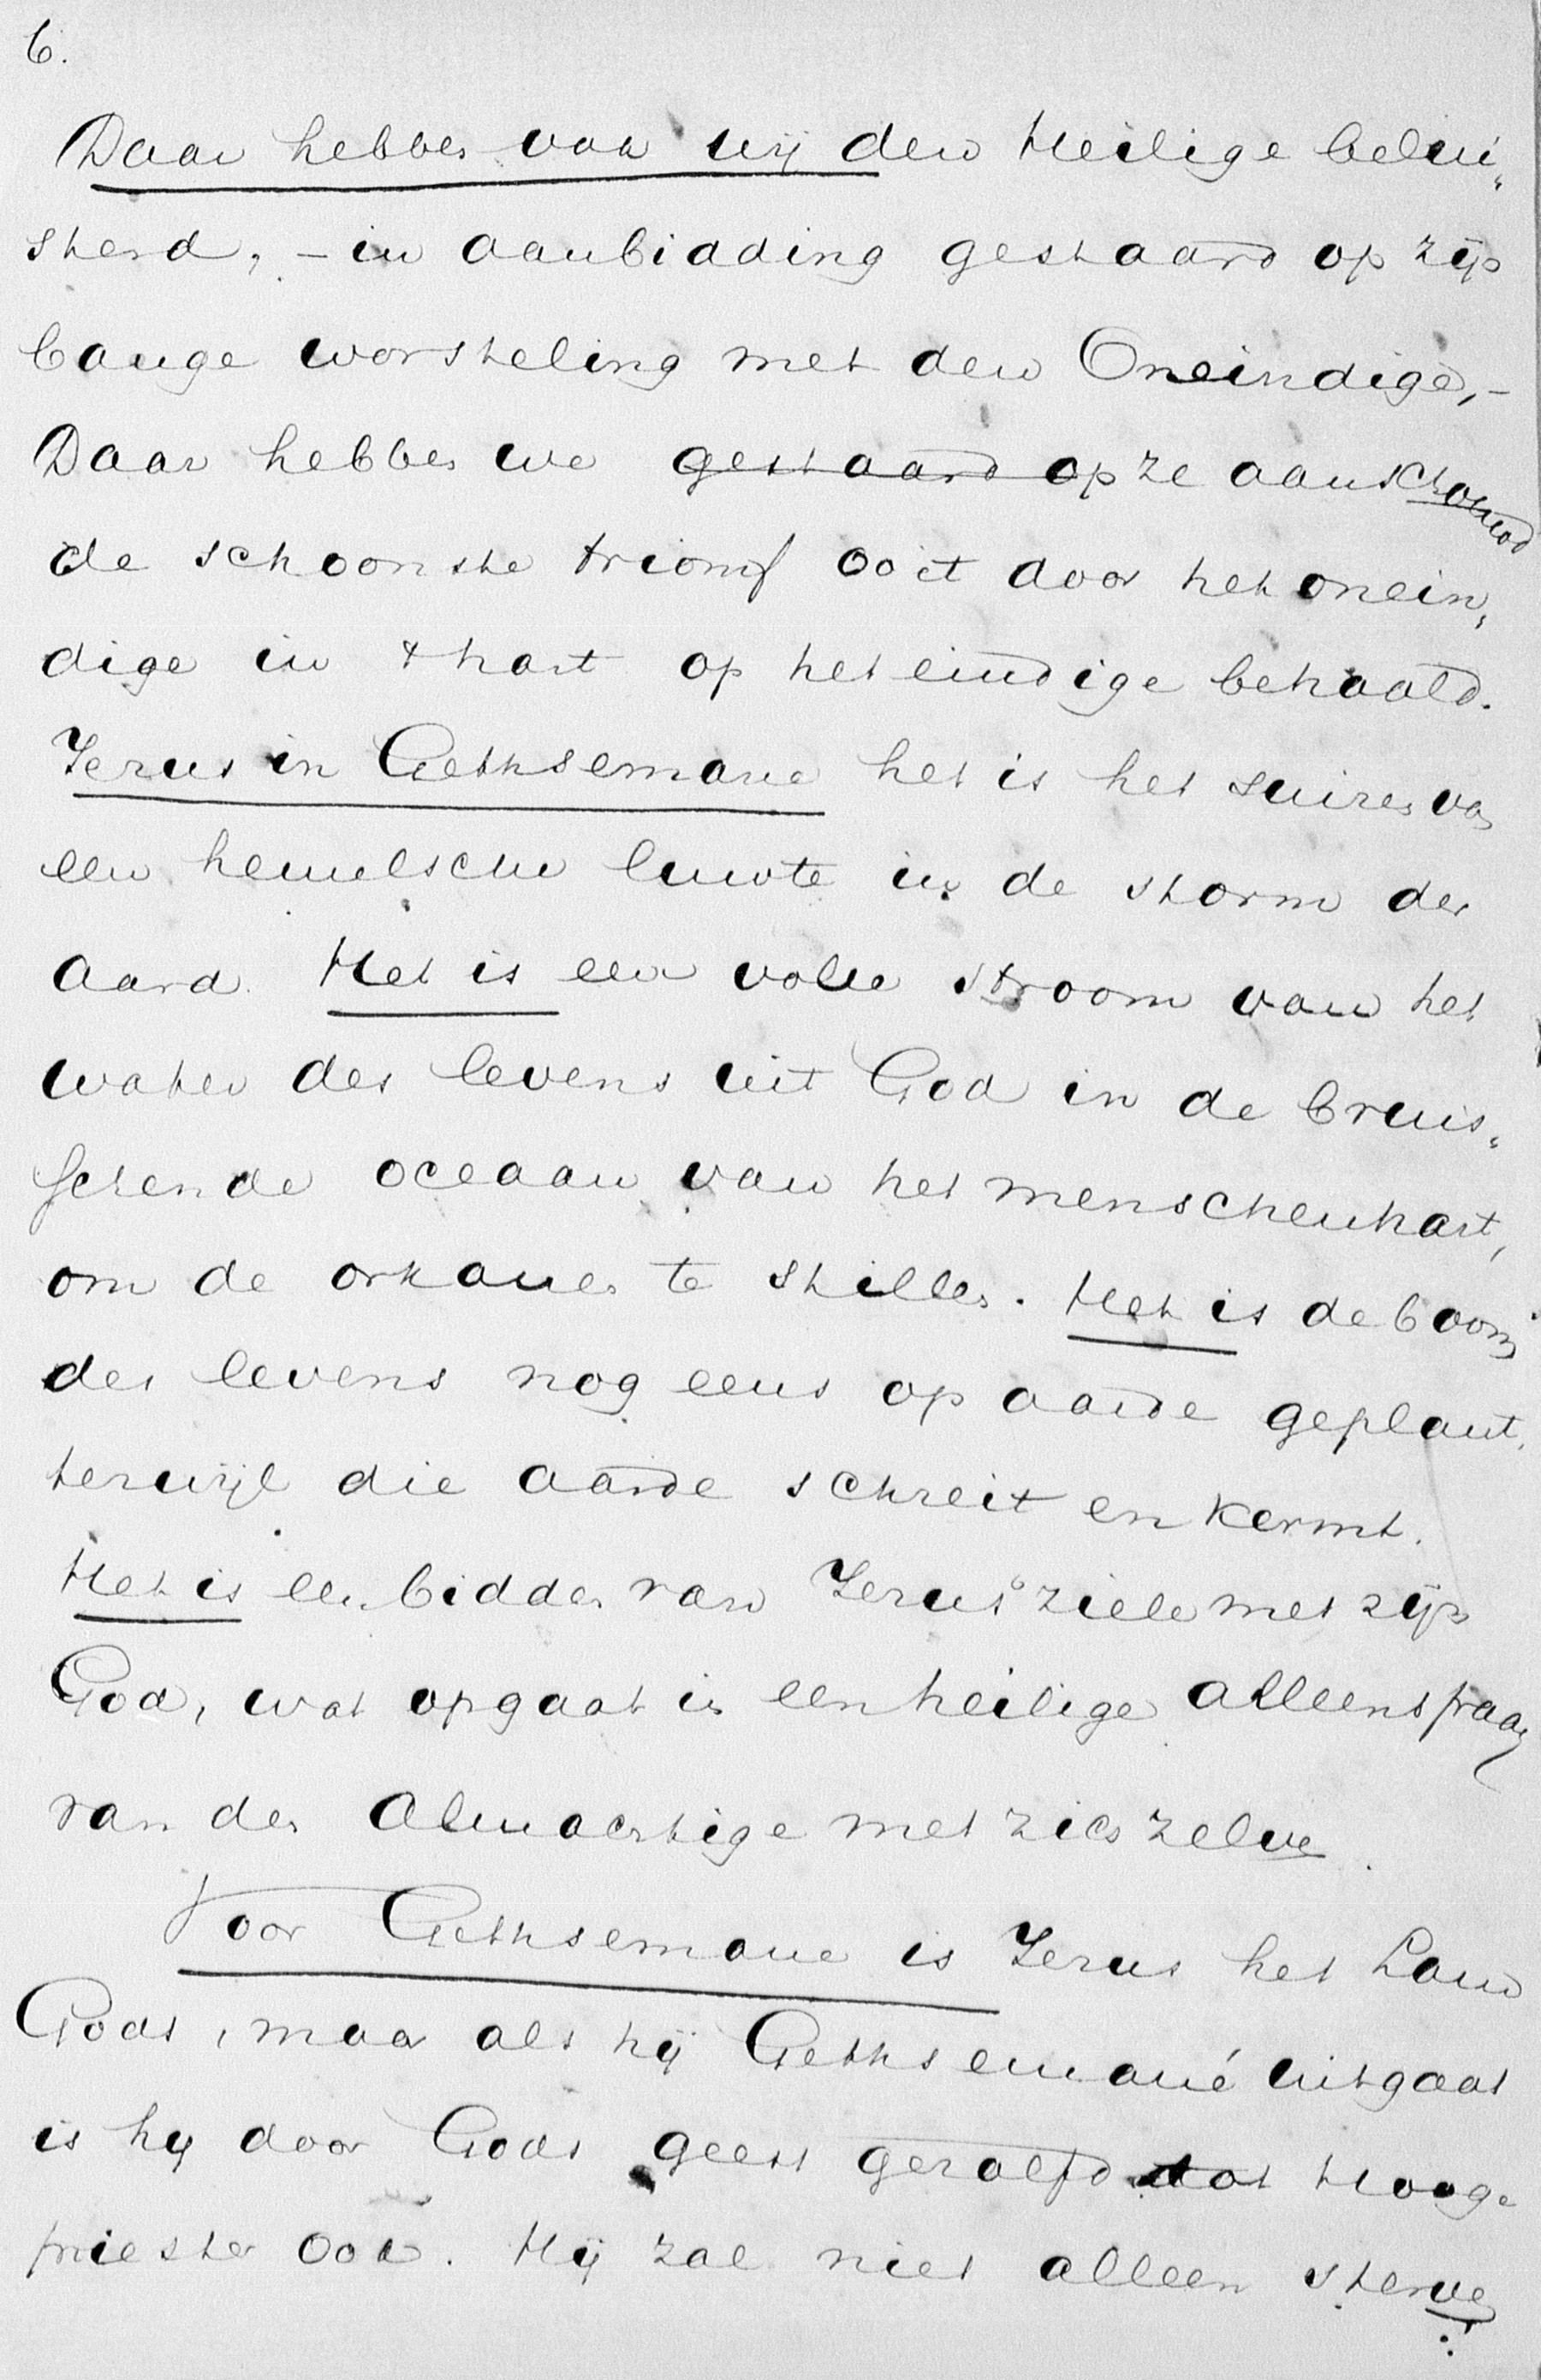 6.
Daar hebben ook wij den Heilige belui„
sterd, – in aanbidding gestaard op zijn
bange worsteling met den Oneindige, –
Daar hebben we gestaard op ze aanschouwd
de schoonste triomf ooit door het onein„
dige in 't hart op het eindige behaald.
Jezus in Gethsemane het is het suizen van
een hemelsche luwte in de storm der
aard. Het is een volle stroom van het
water des levens uit God in de bruis„
schende oceaan van het menschenhart,
om de orkanen te stillen. Het is de boom
des levens nog eens op aarde geplant,
terwijl die aarde schreit en kermt.
Het is een bidden van Jezus' ziele met zijn
God, wat opgaat in een heilige alleenspraak
van den Almachtige met zich zelve.
Voor Gethsemane is Jezus het Lam
Gods, maar als hij Gethsemané uitgaat
is hij door Gods geest gezalfd tot Hooge
priester ook. Hij zal niet alleen sterven